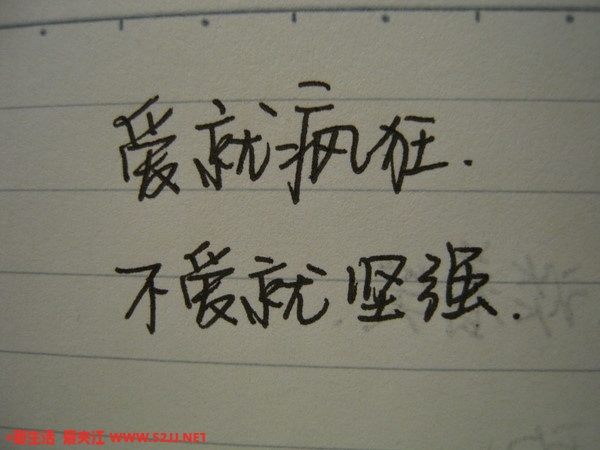 爱就疯狂.
不爱就坚强.
爱生活 爱夹江 WWW.52JJ.NET